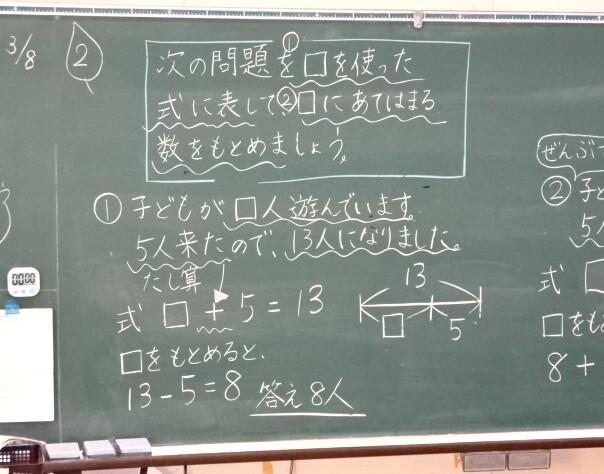 3/8
2
次の問題を①□を使った
式に表して、②□にあてはまる
数をもとめましょう。
① 子どもが□人遊んでいます。
5人来たので、13人になりました。
たし算
式 □+5=13
13
□ 5
□をもとめると、
13-5=8 答え8人
00:00
ぜんぶに
② 子
5
式 □
□をも
8+